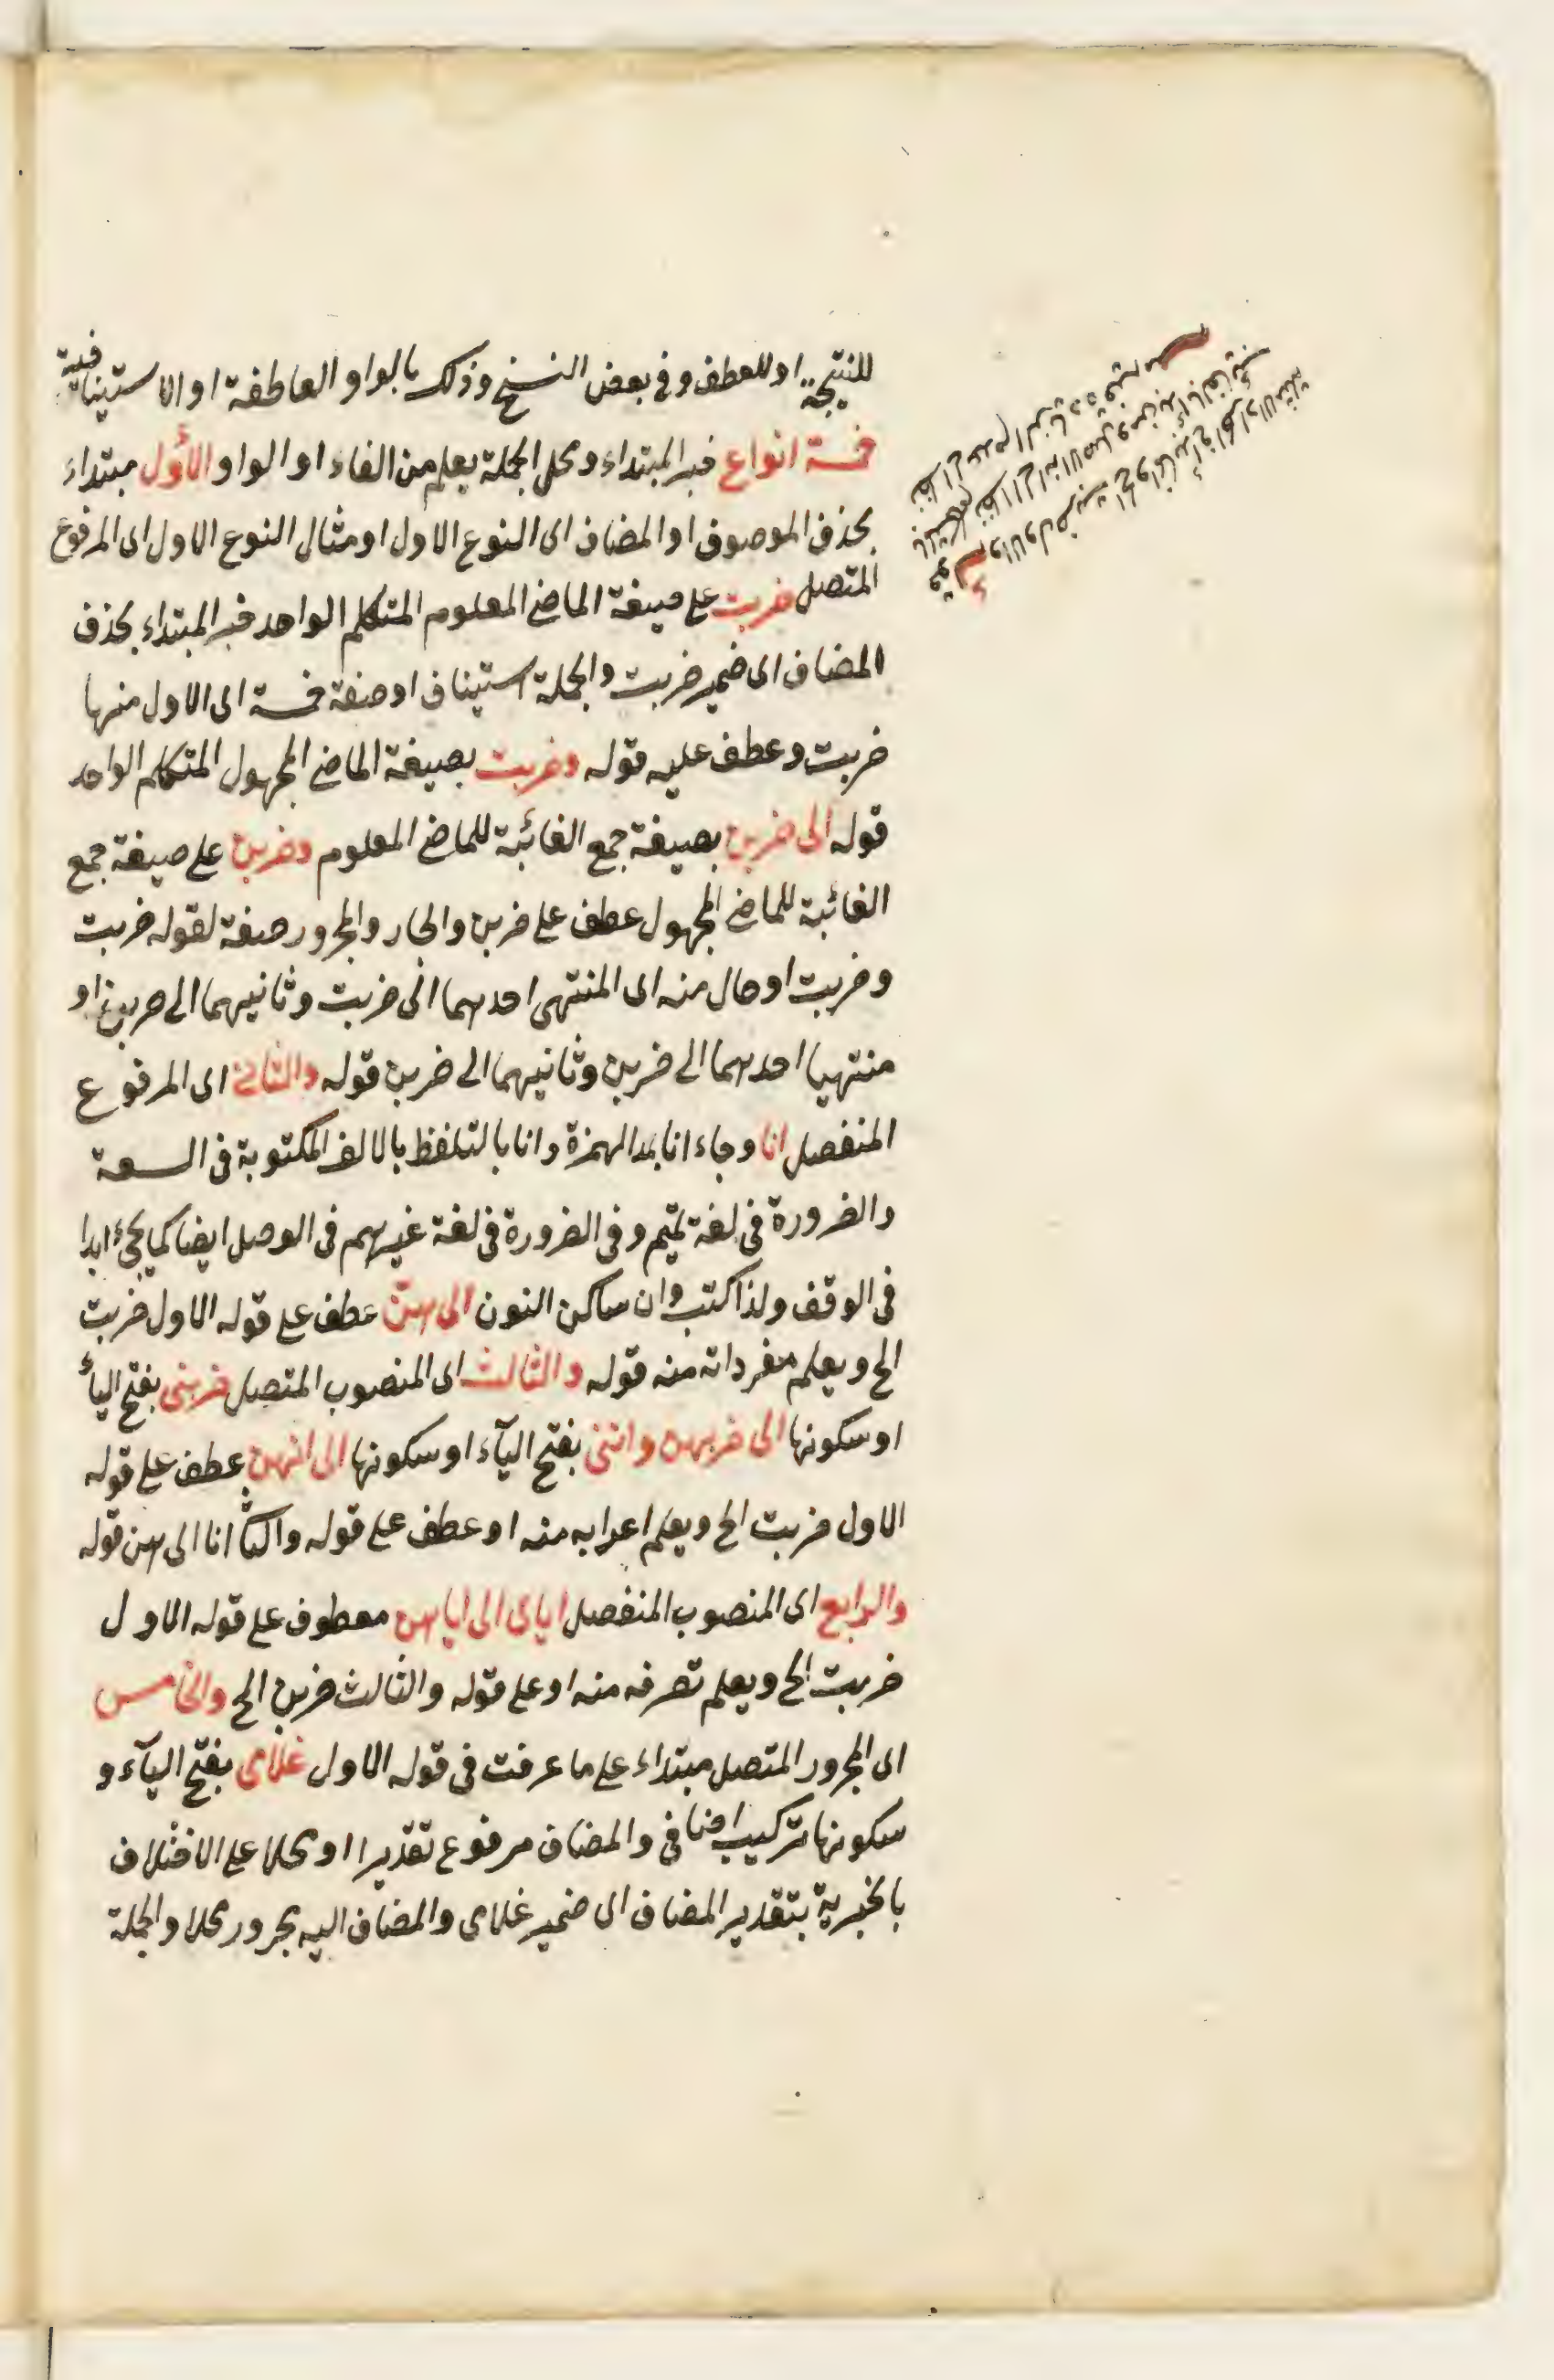 للنتيجة او للعطف وفى بعض النسخ وذلك بالواو العاطفة او الاستينافية
خمسة انواع خبر المبتداء ومحل الجملة يعلم من الفاء او الواو الأول مبتداء
بحذف الموصوف او المضاف اى النوع الاول او مثال النوع الاول اى المرفوع
المتصل ضربت على صيغة الماضى المعلوم المتكلم الواحد خبر المبتداء بحذف
المضاف اى ضمير ضربت والجملة استيناف او صفة خمسة اى الاول منها
ضربت وعطف عليه قوله وضربت بصيغة الماضى المجهول المتكلم الواحد
قوله الى ضربن بصيغة جمع الغائبة للماضى المعلوم وضربن على صيغة جمع
الغائبة للماضى المجهول عطف على ضربن والجار والمجرور صفة لقوله ضربت
وضربت او حال منه اى المنتهى احدهما الى ضربت وثانيهما الى ضربن او
منتهيا احدهما الى ضربن وثانيهما الى ضربن قوله والثانى اى المرفوع
المنفصل انا وجاء انا بمد الهمزة وانا بالتلفظ بالالف المكتوبة فى السعة
والضرورة فى لغة تميم وفى الضرورة فى لغة غيرهم فى الوصل ايضا كما يجئ ابدا
فى الوقف ولذا كتب وان ساكن النون الى هن عطف على قوله الاول ضربت
الخ ويعلم مفرداته منه قوله والثالث اى المنصوب المتصل ضربنى بفتح اليأ
او سكونها الى ضربهن واننى بفتح اليآء او سكونها الى انهن عطف على قوله
الاول ضربت الخ ويعلم اعرابه منه او عطف على قوله والثا انا الى هن قوله
والرابع اى المنصوب المنفصل اياى الى اياهن معطوف على قوله الاول
ضربت الخ ويعلم تصرفه منه او على قوله والثالث ضربن الخ والخامس
اى المجرور المتصل مبتداء على ما عرفت فى قوله الاول غلامى بفتح اليآء و
سكونها تركيب اضافى والمضاف مرفوع تقديرا او محلا على الاختلاف
بالخبرية بتقدير المضاف اى ضمير غلامى والمضاف اليه مجرور محلا والجملة